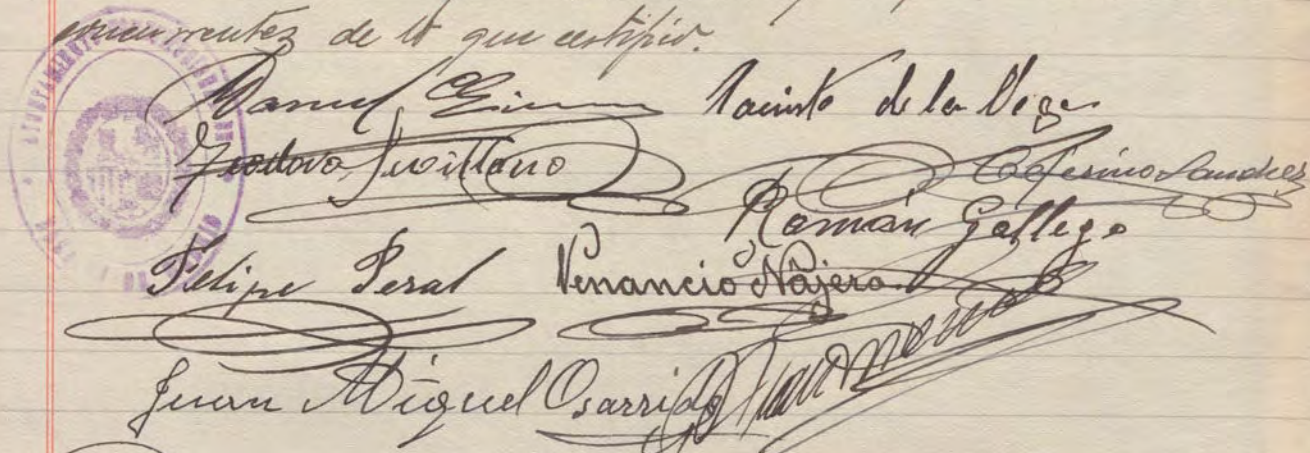 de lo que certifico.
Manuel Jacinto de la Vega
Teodoro Sevillano
Ceferino Sanchez
Román Gallego
Felipe Peral Venancio Nájera
Juan Miguel Garrido